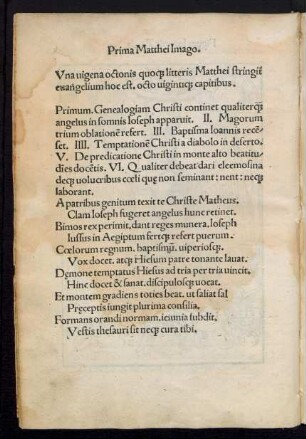 Prima Matthei Imago.
Vna uigena octonis quocꝫ litteris Matthei stringit̃
euangelium hoc est, octo uigintiqꝫ capitibus.
Primum. Genealogiam Christi continet qualiterqꝫ
angelus in somnis Ioseph apparuit. II. Magorum
trium oblationẽ refert. III. Baptisma Ioannis recẽ-
set. IIII. Temptationẽ Christi a diabolo in deserto.
V. De predicatione Christi in monte alto beatiu-
dies docẽtis. VI. Qualiter debeat dari eleemosina
deqꝫ uolucribus cœli quę non seminant: nent: neqꝫ
laborant.
A patribus genitum texit te Christe Matheus.
Clam Ioseph fugeret angelus hunc retinet.
Bimos rex perimit, dant reges munera, Ioseph
Iussus in Aegiptum fertqꝫ refert puerum.
Cœlorum regnum, baptismũ, uiperiosqꝫ.
Vox docet. atqꝫ Hiesum patre tonante lauat.
Dęmone temptatus Hiesus ad tria per tria uincit.
Hinc docet & sanat. discipulosqꝫ uocat.
Et montem gradiens toties beat. ut saliat sal
Pręceptis iungit plurima consilia.
Formans orandi normam. ieiunia subdit.
Vestis thesauri sit neqꝫ cura tibi.